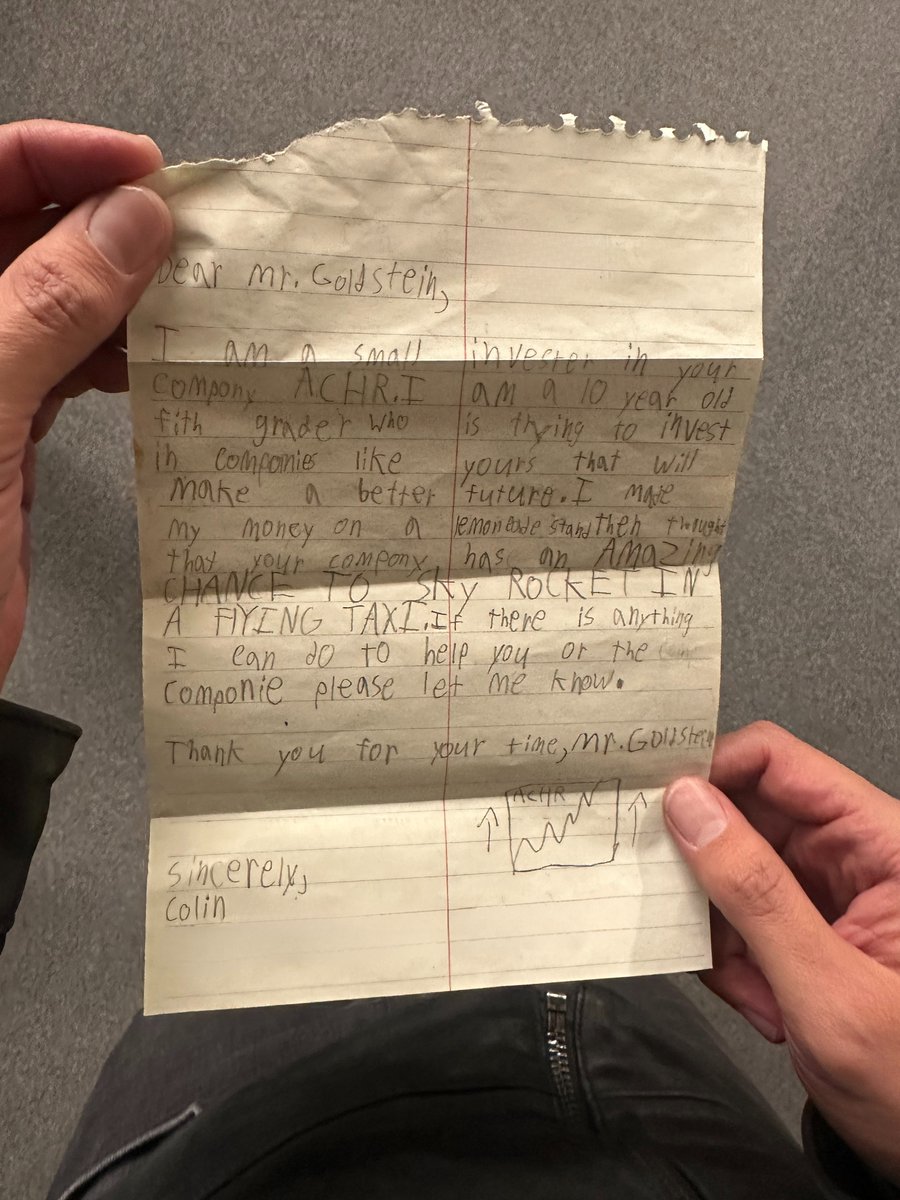 Dear Mr. Goldstein,
I am a small invester in your
Compony ACHR. I am a 10 year old
fith grader who is trying to invest
in componies like yours that will
make a better future. I made
my money on a lemoneade stand then thought
that your compony has an AMaZing
CHANCE TO SKy ROCKET IN
A FlYING TAXI. If there is anything
I can do to help you or the
Componie please let me know.
Thank you for your time, Mr. Goldstein
ACHR
sincerely,
Colin